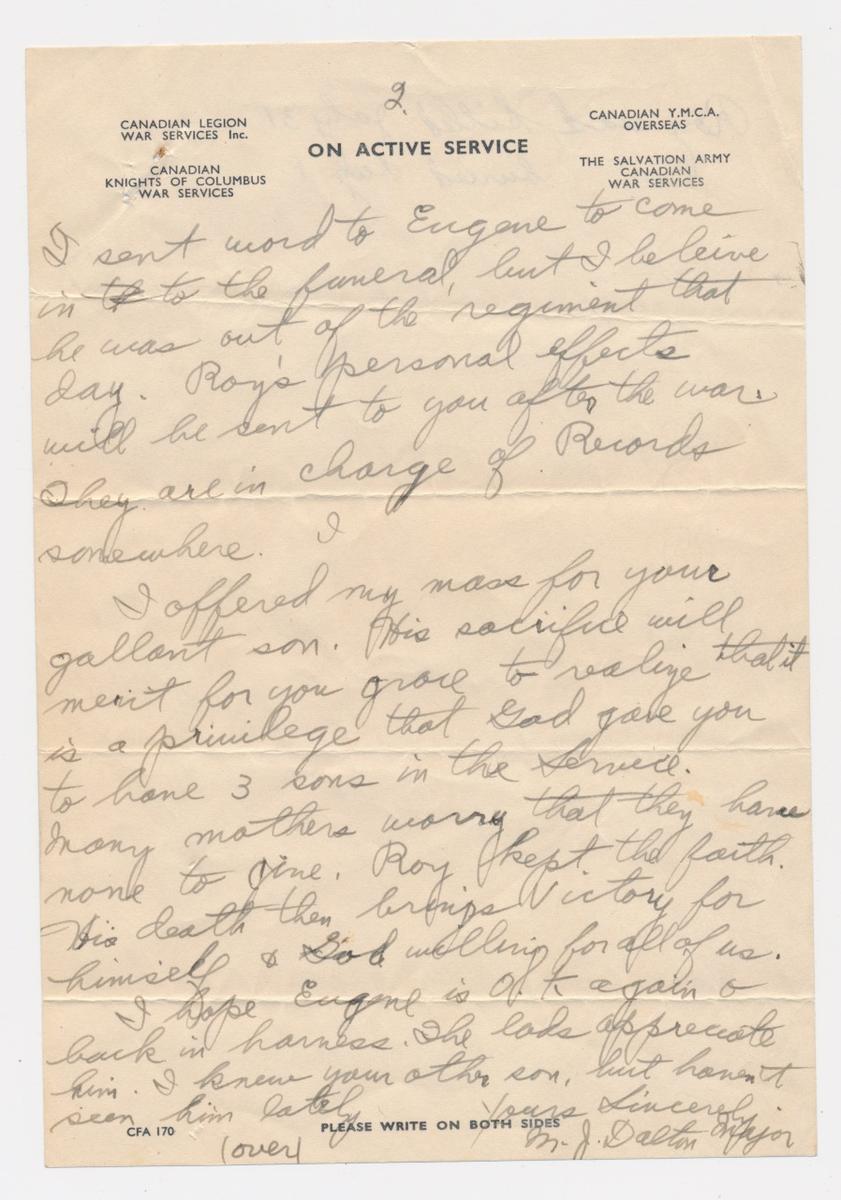 2.
CANADIAN LEGION
WAR SERVICES Inc.
CANADIAN
KNIGHTS OF COLUMBUS
WAR SERVICES
ON ACTIVE SERVICE
CANADIAN Y.M.C.A.
OVERSEAS
THE SALVATION ARMY
CANADIAN
WAR SERVICES
I sent word to Eugene to come
in to the funeral, but I beleive
he was out of the regiment that
day. Roy's personal effects
will be sent to you after the war.
They are in charge of Records
somewhere. I
I offered my mass for your
gallant son. His sacrifice will
merit for you grace to realize that it
is a privilege that God gave you
to have 3 sons in the Service.
Many mothers worry that they have
none to give. Roy kept the faith.
His death then brings Victory for
himself & God willing for all of us.
I hope Eugene is O.K. again &
back in harness. The lads appreciate
him. I knew your other son, but haven't
seen him lately
Yours Sincerely,
M. J. Dalton Major
CFA 170
PLEASE WRITE ON BOTH SIDES
(over)